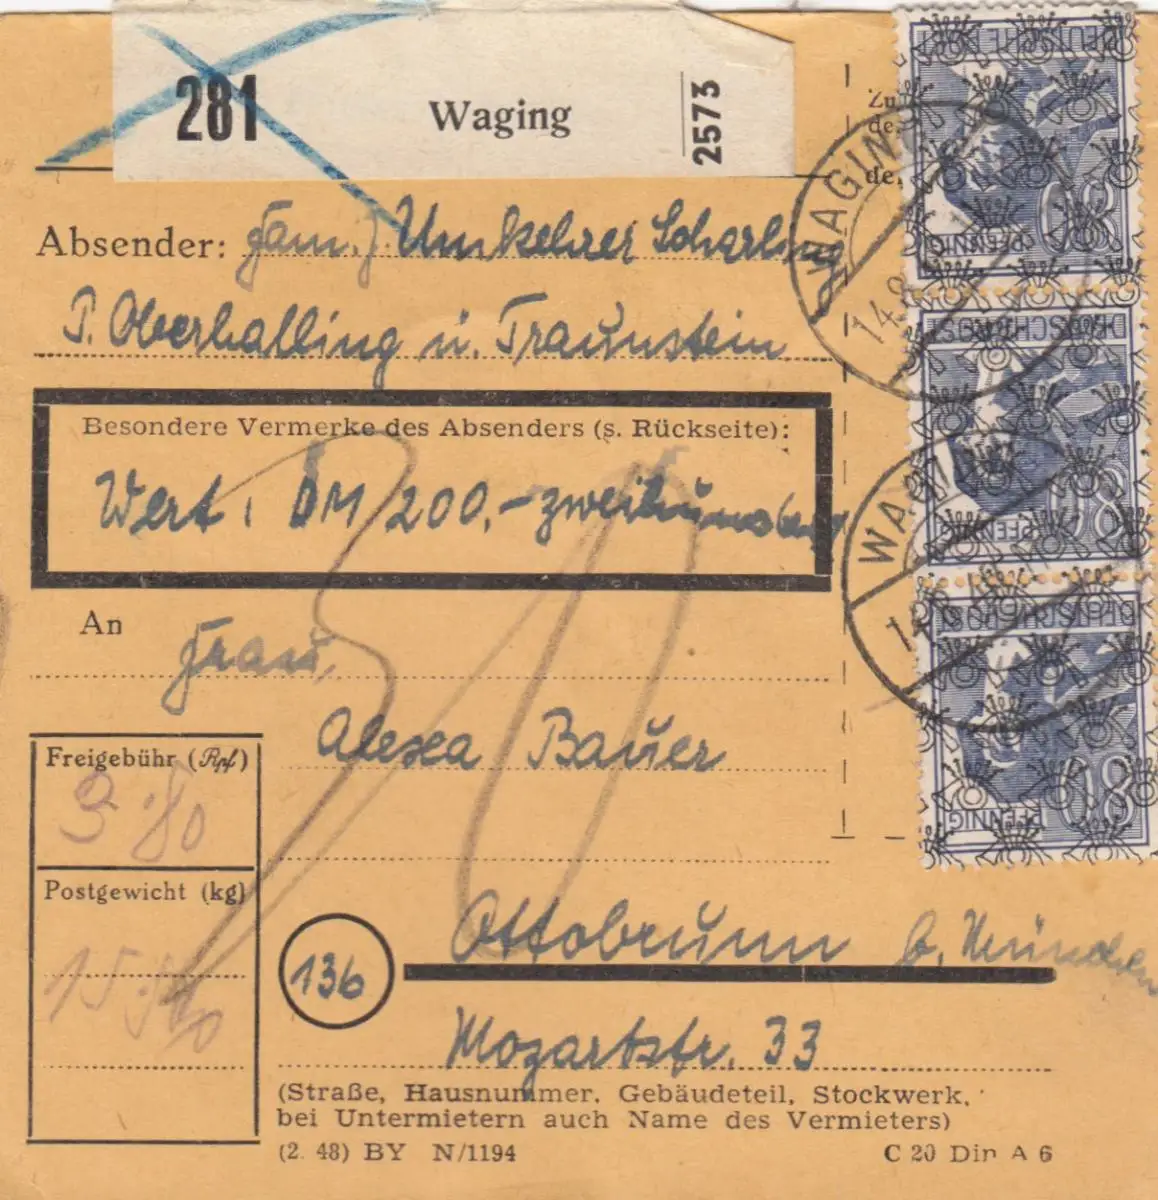 281 Waging 2573
Zu
de
de
Absender: Fam. Umkehrer Scharling
P. Oberhalling ü. Traunstein
Besondere Vermerke des Absenders (s. Rückseite):
Wert: DM 200.- zweihundert
An
Frau,
Alexa Bauer
Freigebühr (Rpf)
Postgewicht (kg)
Ottobrunn b. München
13b
Mozartstr. 33
(Straße, Hausnummer, Gebäudeteil, Stockwerk,
bei Untermietern auch Name des Vermieters)
(2. 48) BY N/1194 C 20 Din A 6
DEUTSCHE POST
80
PFENNIG
DEUTSCHE POST
80
PFENNIG
DEUTSCHE POST
80
PFENNIG
WAGING
14.9
WA